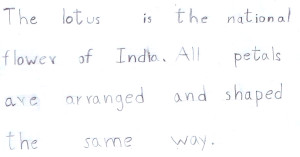 The lotus is the national
flower of India. All petals
are arranged and shaped
the same way.